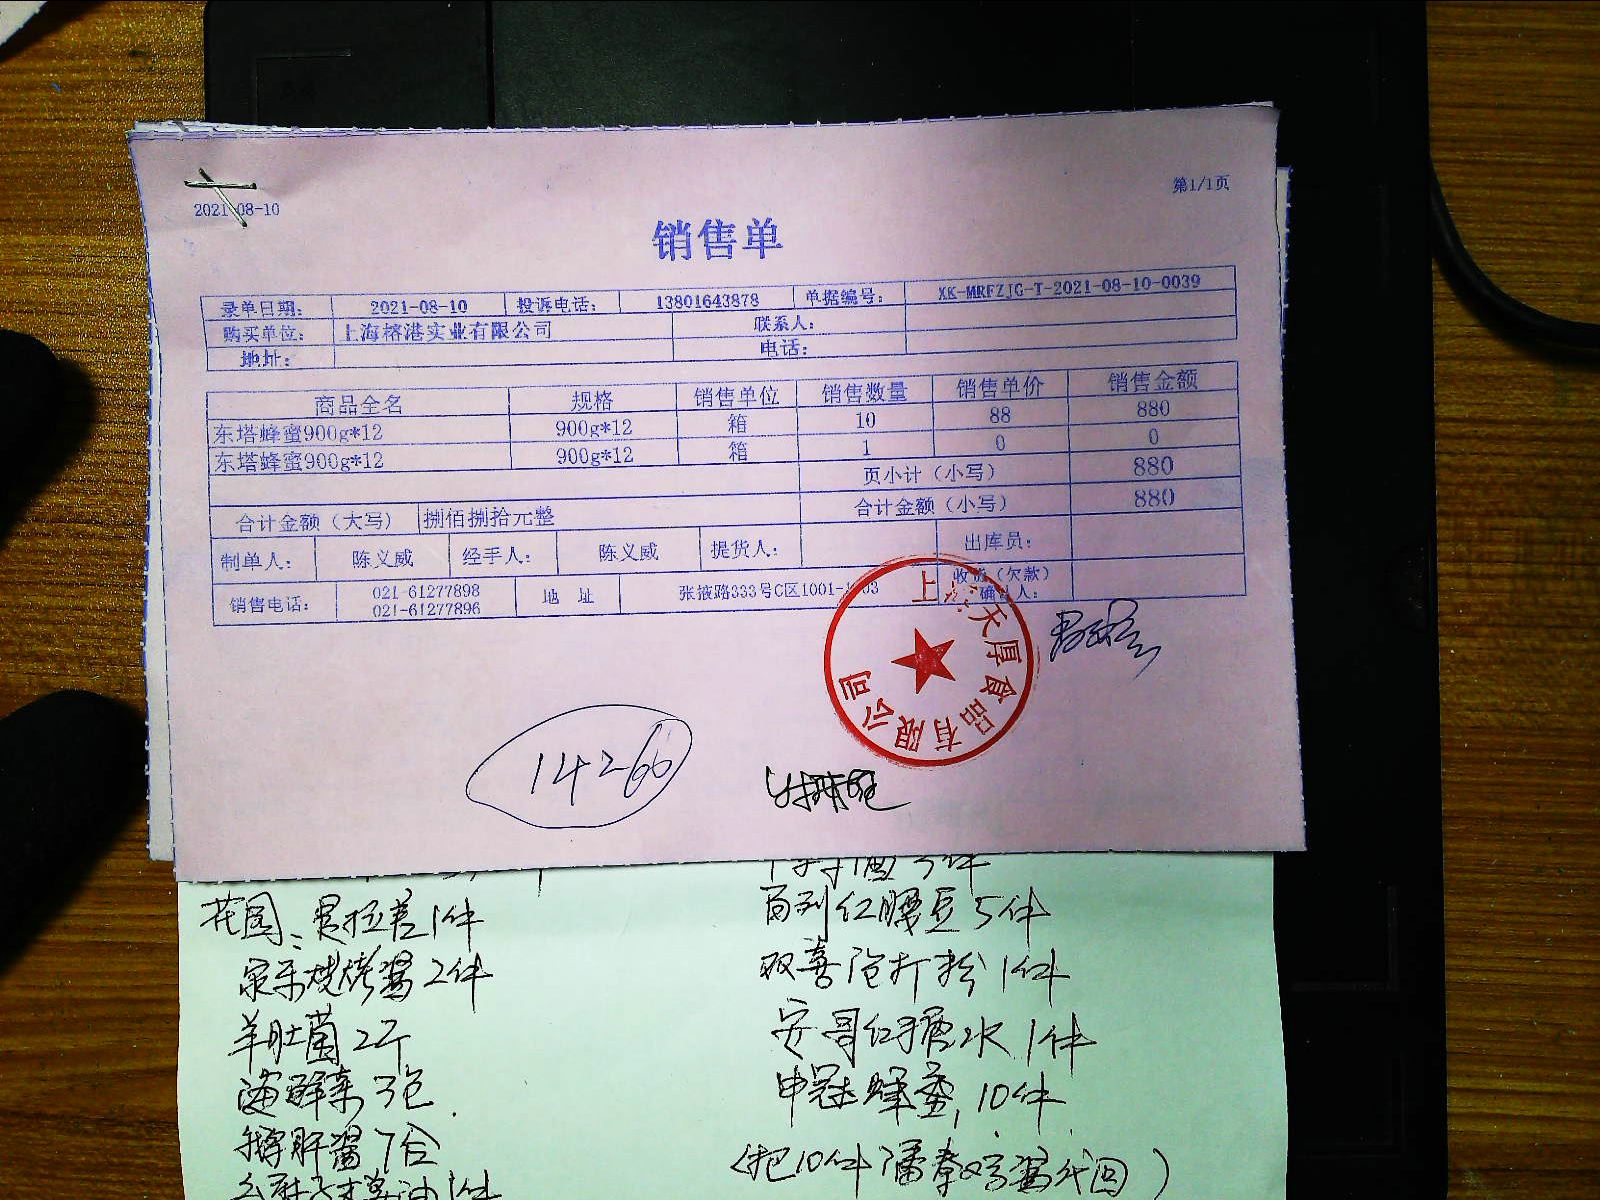 第1/1页
2021-08-10
销售单
录单日期： 2021-08-10 投诉电话： 13801643878 单据编号： XK-MRFZJG-T-2021-08-10-0039
购买单位： 上海榕港实业有限公司 联系人：
地址： 电话：
商品全名 规格 销售单位 销售数量 销售单价 销售金额
东塔蜂蜜900g*12 900g*12 箱 10 88 880
东塔蜂蜜900g*12 900g*12 箱 1 0 0
页小计（小写） 880
合计金额（大写） 捌佰捌拾元整 合计金额（小写） 880
制单人： 陈义威 经手人： 陈义威 提货人： 出库员：
销售电话： 021-61277898 地 址 张掖路333号C区1001-1003 收货（欠款）
021-61277896 确认人：
上海天厚食品有限公司
14266
花园： 1件
百列红腰豆5件
烧烤酱2件
双喜 1件
羊肚菌2斤
安哥红糖水1件
海鲜菜3包
申冠蜂蜜，10件
鹅肝酱7合
（把10件潘泰 酱代回）